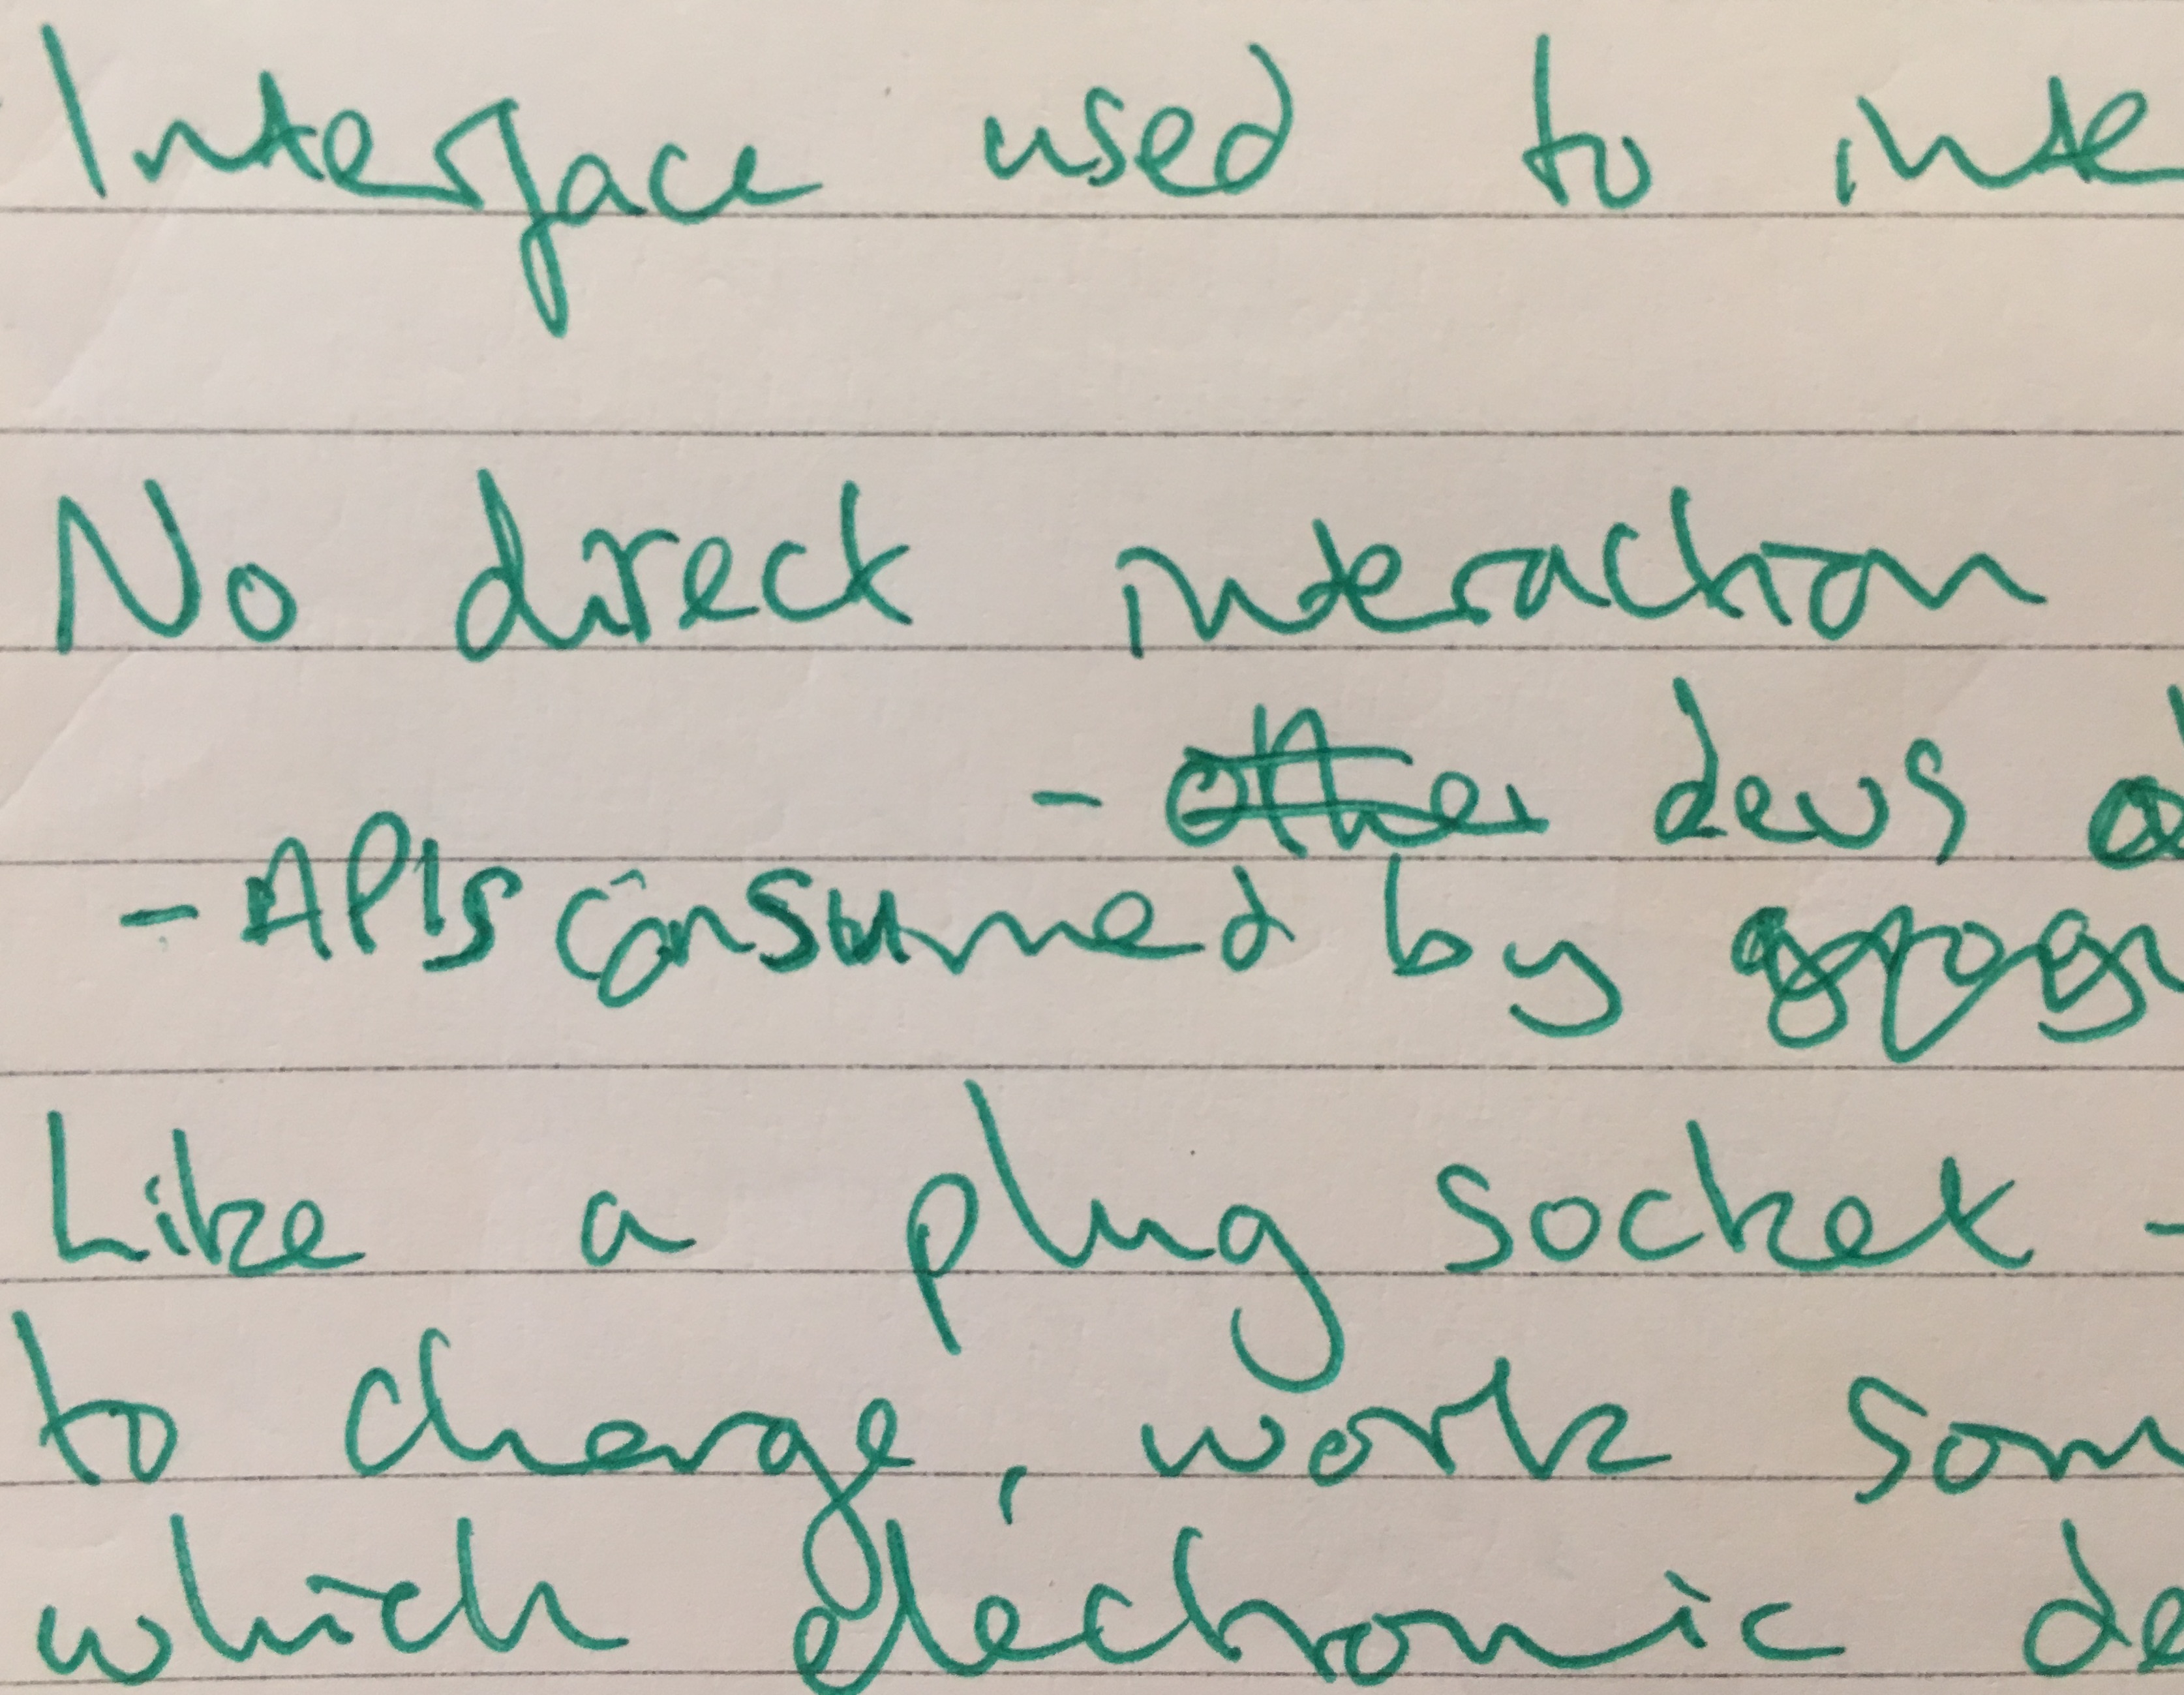 Interface used to inte
No direct interaction
- other devs
- APIs consumed by
Like a plug socket -
to charge, work som
which electronic de